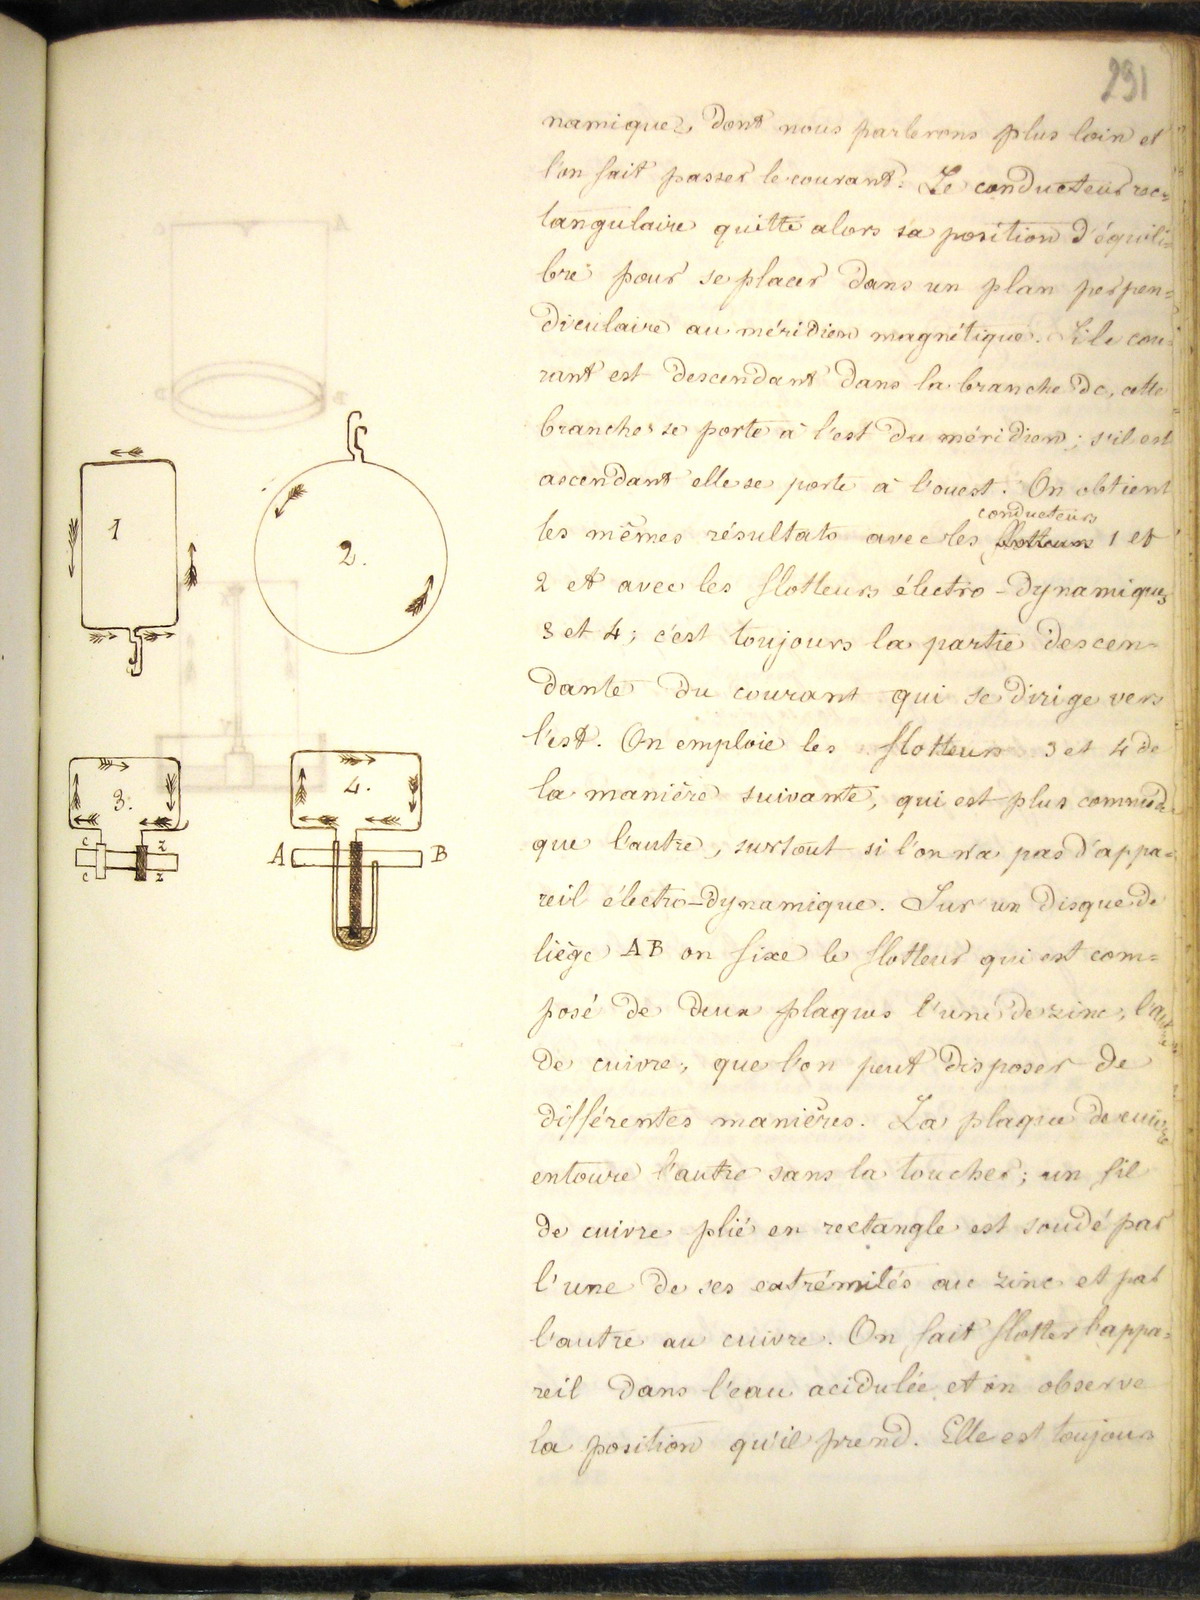 291
namiques, dont nous parlerons plus loin et
l'on fait passer le courant. Le conducteur rec-
tangulaire quitte alors sa position d'équili-
bre pour se placer dans un plan perpen-
diculaire au méridien magnétique. Si le cou-
rant est descendant dans la branche dc, cette
branche se porte à l'est du méridien ; s'il est
ascendant elle se porte à l'ouest. On obtient
conducteurs
les mêmes résultats avec les flotteurs 1 et
2 et avec les flotteurs électro-dynamiques
3 et 4 ; c'est toujours la partie descen-
dante du courant qui se dirige vers
l'est. On emploie les flotteurs 3 et 4 de
la manière suivante, qui est plus commode
que l'autre, surtout si l'on n'a pas d'appa-
reil électro-dynamique. Sur un disque de
liège AB on fixe le flotteur qui est com-
posé de deux plaques l'une de zinc, l'autre
de cuivre, que l'on peut disposer de
différentes manières. La plaque de cuivre
entoure l'autre sans la toucher ; un fil
de cuivre plié en rectangle est soudé par
l'une de ses extrémités au zinc et par
l'autre au cuivre. On fait flotter l'appa-
reil dans l'eau acidulée et on observe
la position qu'il prend. Elle est toujours
1
2.
3.
4.
c z
c z
A B